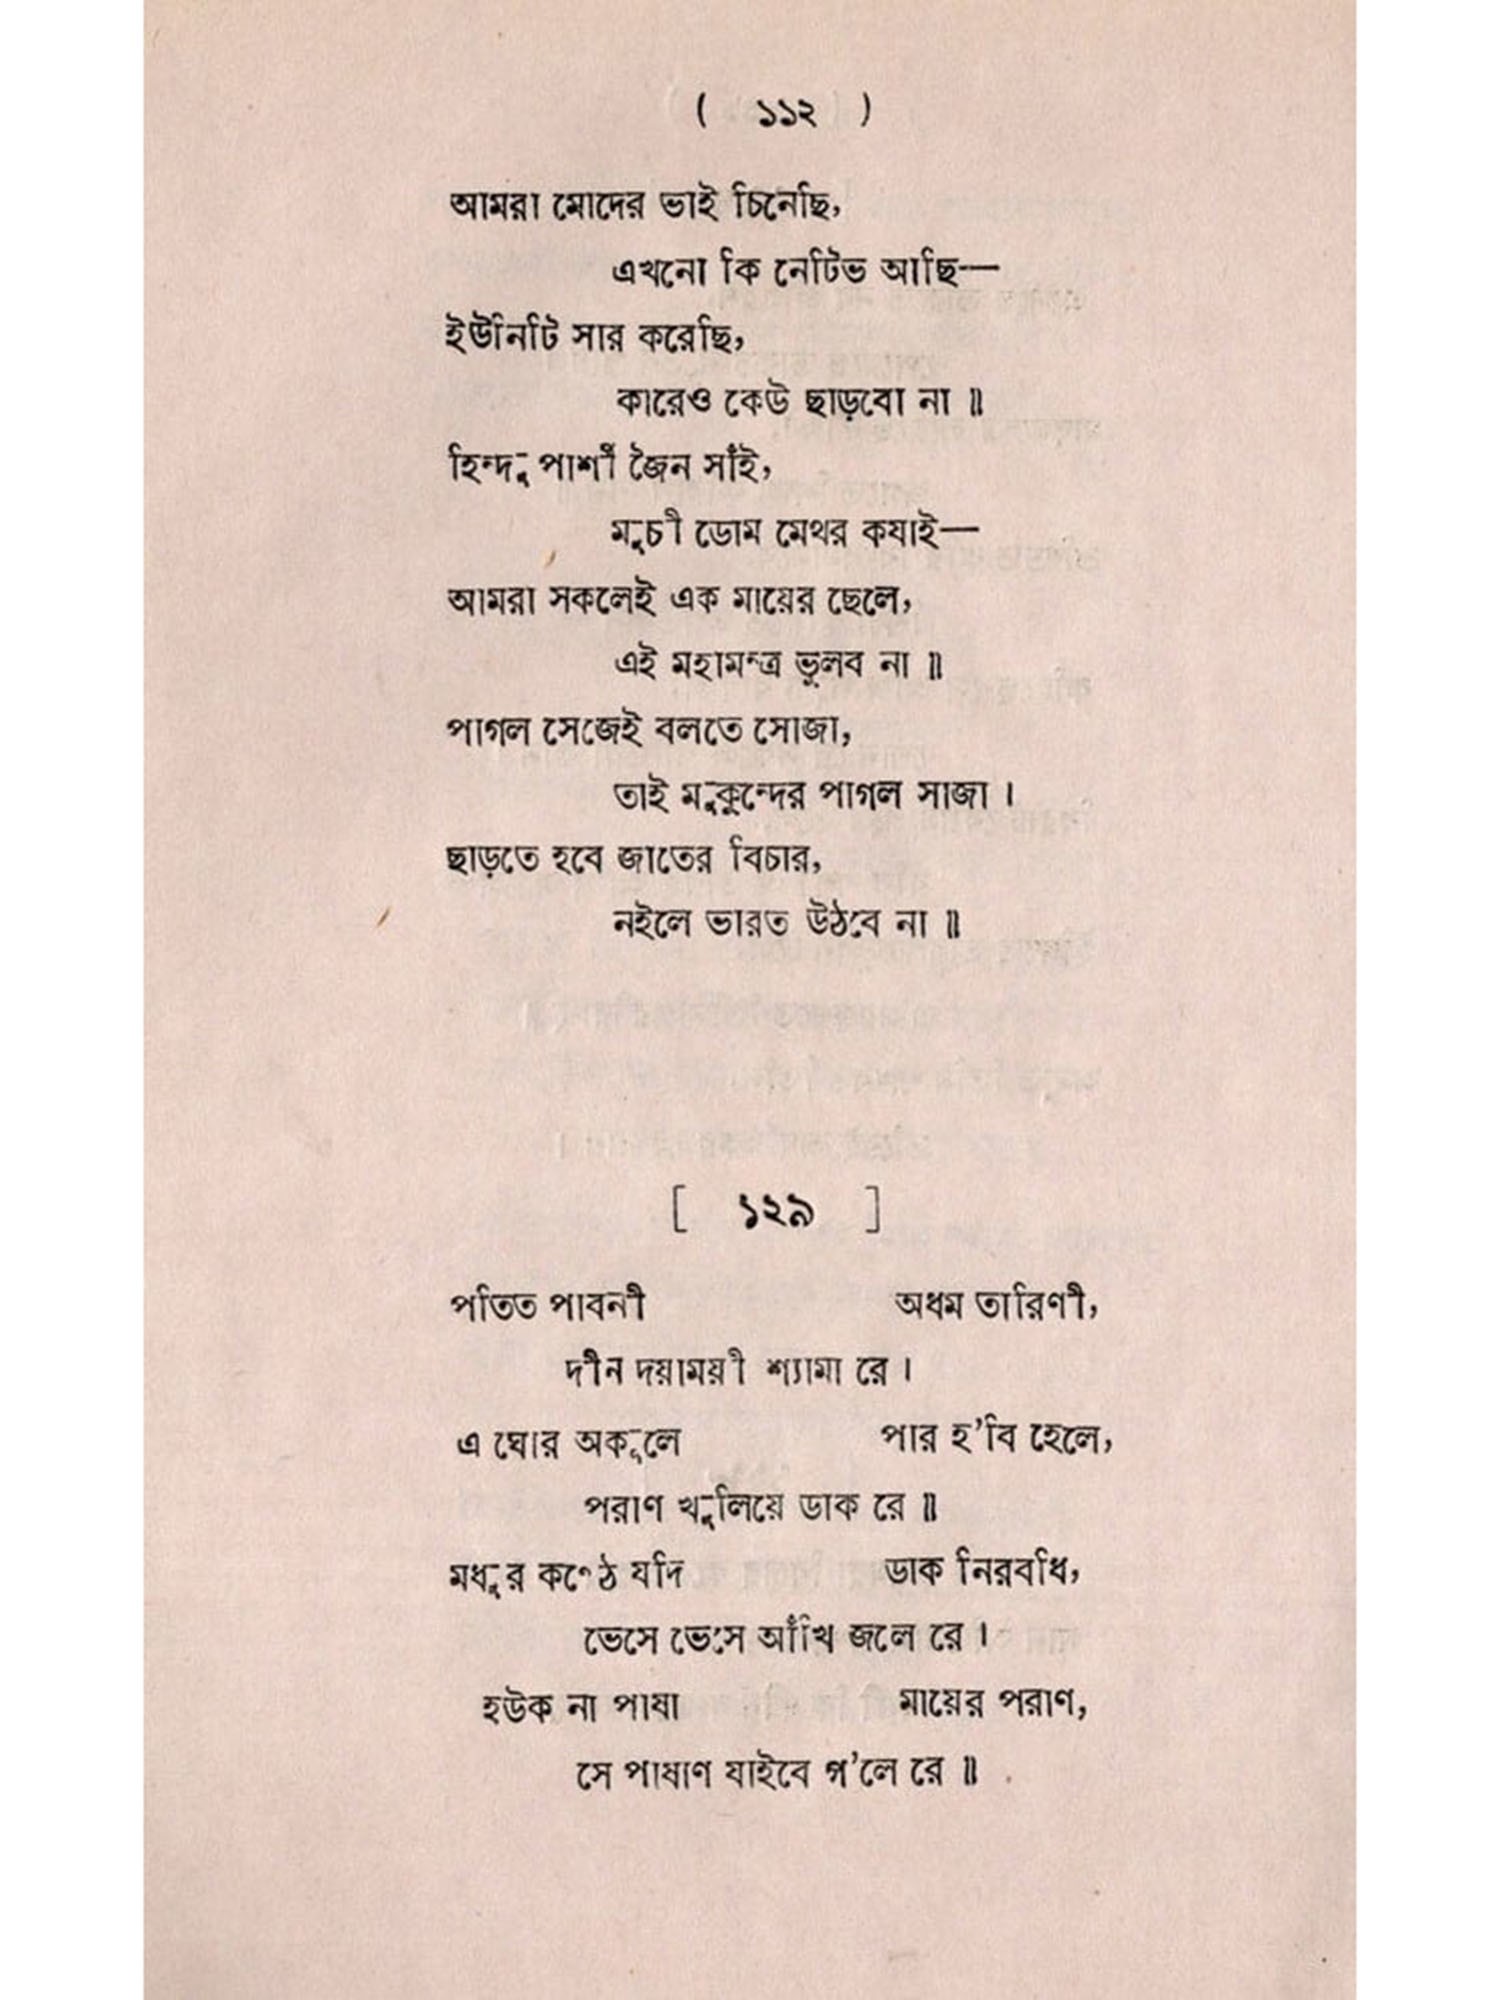 ( ১১২ )
আমরা মোদের ভাই চিনেছি,
এখনো কি নেটিভ আছি—
ইউনিটি সার করেছি,
কারেও কেউ ছাড়বো না ॥
হিন্দু পার্শী জৈন সাঁই,
মুচী ডোম মেথর কযাই—
আমরা সকলেই এক মায়ের ছেলে,
এই মহামন্ত্র ভুলব না ॥
পাগল সেজেই বলতে সোজা,
তাই মুকুন্দের পাগল সাজা ।
ছাড়তে হবে জাতের বিচার,
নইলে ভারত উঠবে না ॥
[ ১২৯ ]
পতিত পাবনী অধম তারিণী,
দীন দয়াময়ী শ্যামা রে ।
এ ঘোর অকূলে পার হ’বি হেলে,
পরাণ খুলিয়ে ডাক রে ॥
মধুর কণ্ঠে যদি ডাক নিরবধি,
ভেসে ভেসে আঁখি জলে রে ।
হউক না পাষা মায়ের পরাণ,
সে পাষাণ যাইবে গ’লে রে ॥